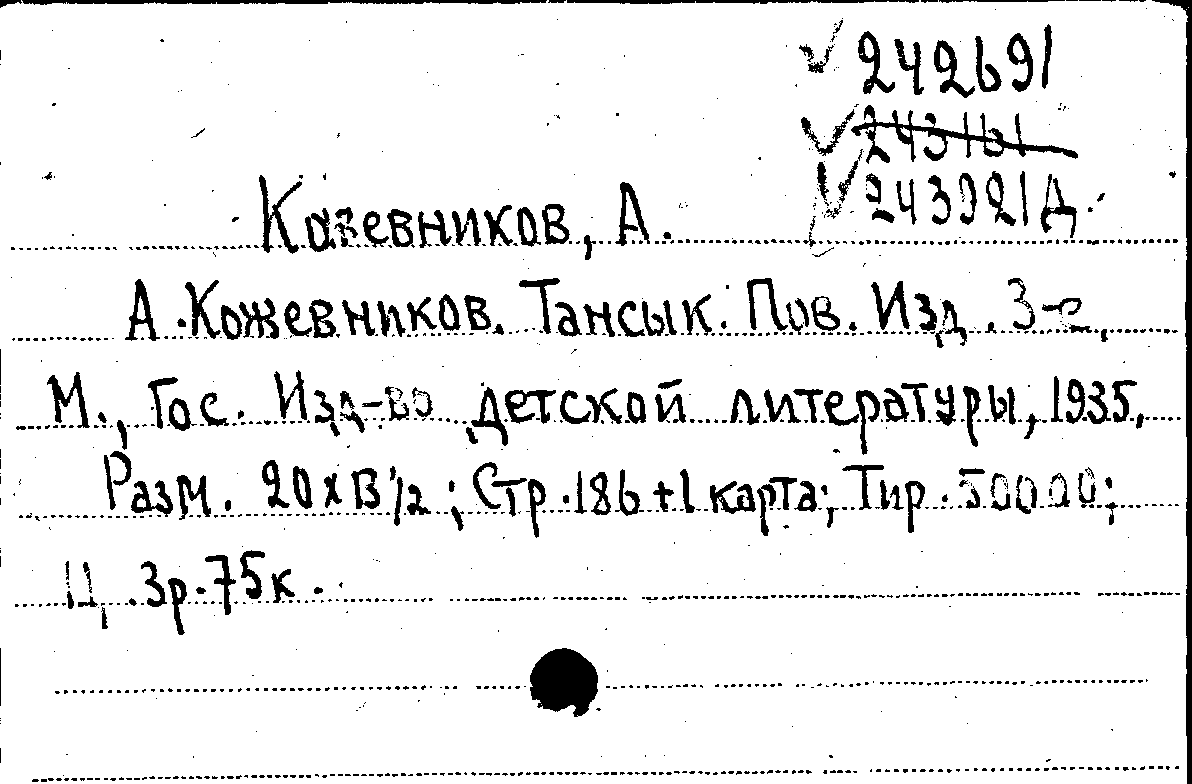 242691
243161
243921д.
Казевников, А.
А. Кожевников. Тансык. Пов. Изд. 3-е.
М., Гос. Изд-во детской литературы, 1935.
Разм. 20х13 1/2; Стр. 186+1 карта; Тир. 50000;
Ц. 3р.75к.